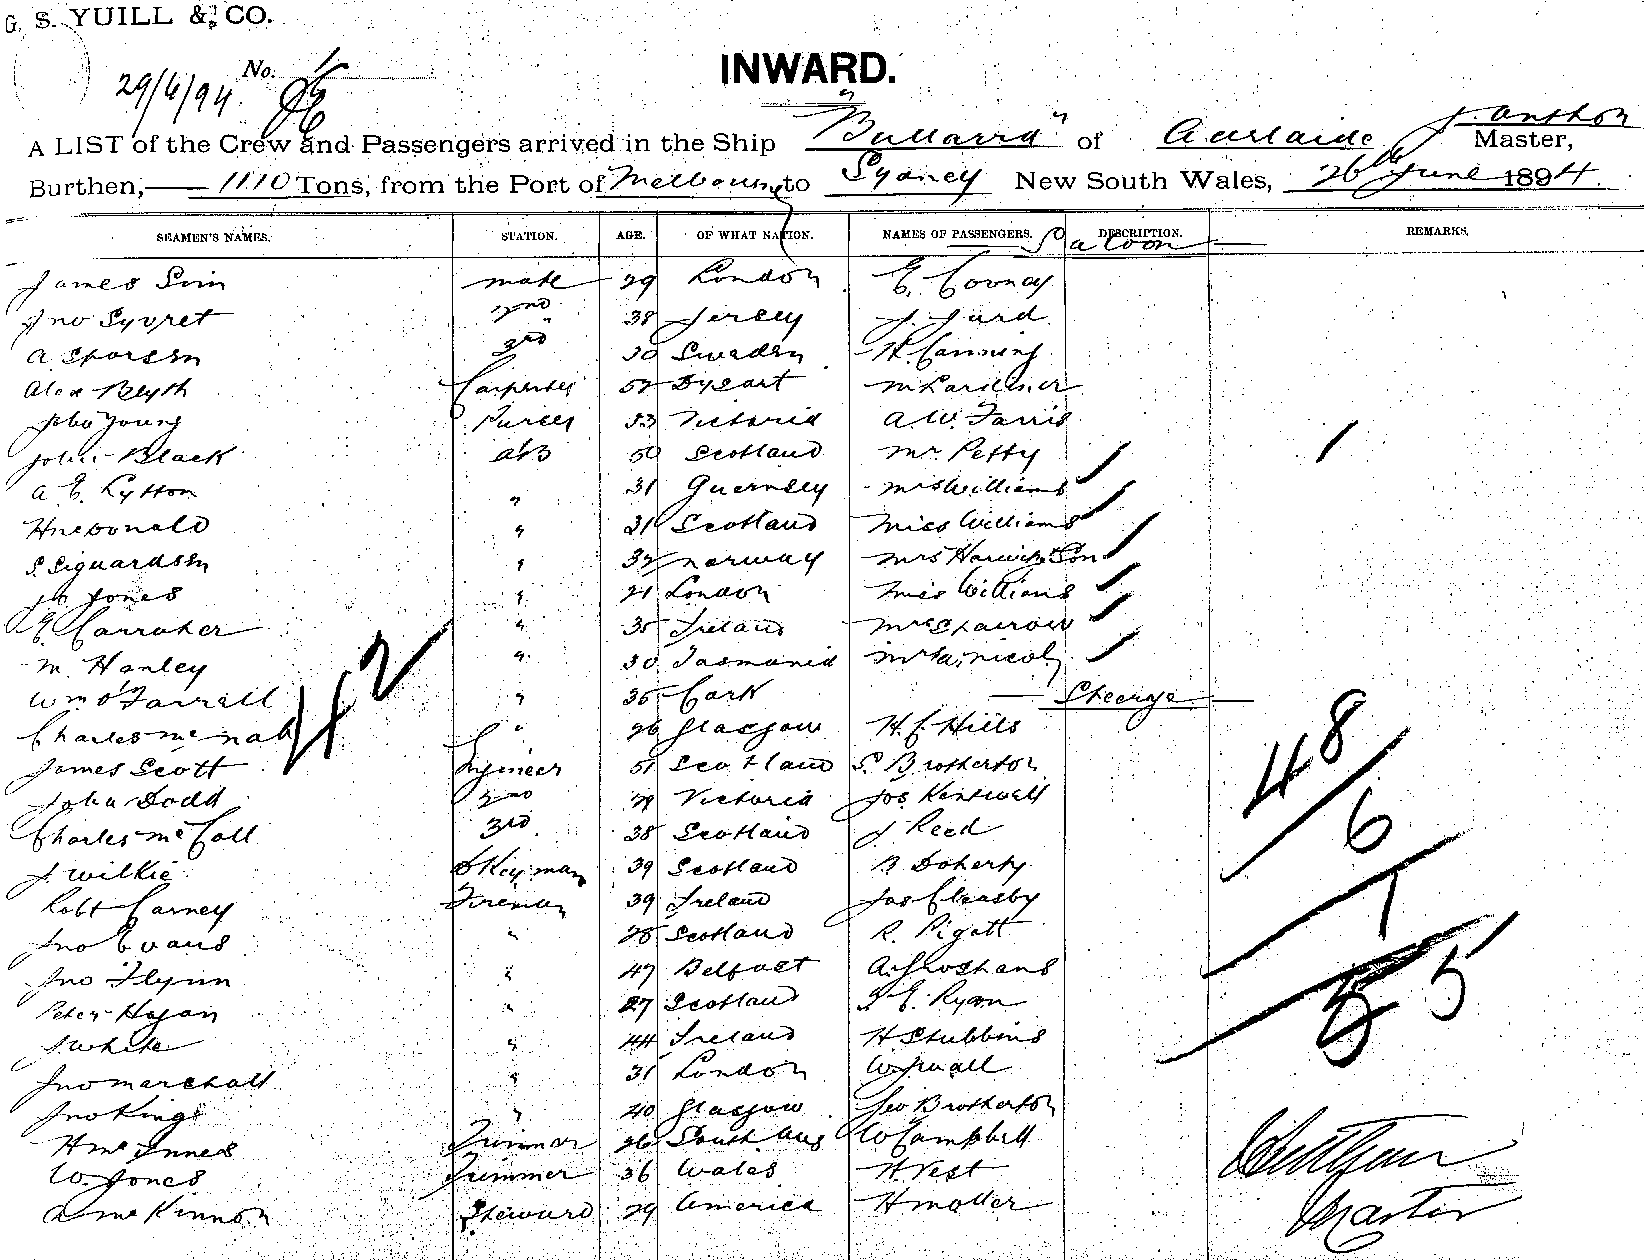 G. S. YUILL & CO.
29/6/94 No.
INWARD.
A LIST of the Crew and Passengers arrived in the Ship "Bullarra" of Adelaide Master,
Burthen, 1110 Tons, from the Port of Melbourne to Sydney New South Wales, 26th June 1894
SEAMEN'S NAMES. STATION. AGE. OF WHAT NATION. NAMES OF PASSENGERS. DESCRIPTION. REMARKS.
Saloon
James Sim mate 29 London
Jno Syvret 2nd 38 Jersey J. Jurd
3rd 30 Sweden H. Canning
Alex Blyth Carpenter 52 Dysart
John Young Purser 53 Victoria A.W. Farris
John Black AB 50 Scotland Mr Petty
A E. Lytton " 31 Guernsey Mrs Williams
H McDonald " 21 Scotland Miss Williams
S. Siguardsen " 32 Norway Mrs Son
Jones " 21 London Miss Williams
E. Carraher " 35 Ireland
M. Hanley " 30 Tasmania
Wm O'Farrell " 35 Cork Steerage
Charles McNab " 26 Glasgow H. C. Hills
James Scott Engineer 51 Scotland S. Brotherton
John Dodd 2nd 29 Victoria Jos. Kentwell
Charles McCall 3rd 38 Scotland J Reed
J. Wilkie DKeyman 39 Scotland B Doherty
Robt Carney Fireman 39 Ireland Jas Cleasby
Jno Evans " 28 Scotland R. Pigott
Jno Flynn " 47 Belfast
Peter Hogan " 27 Scotland Ryan
J. White " 44 Ireland H Stubbins
Jno Marshall " 31 London
Jno King " 40 Glasgow Geo Brotherton
H McInnes Trimmer 26 South Aus W Campbell
W. Jones Trimmer 36 Wales H Vest
McKinnon Steward 29 America H Moller
42
48
6
1
55
Master